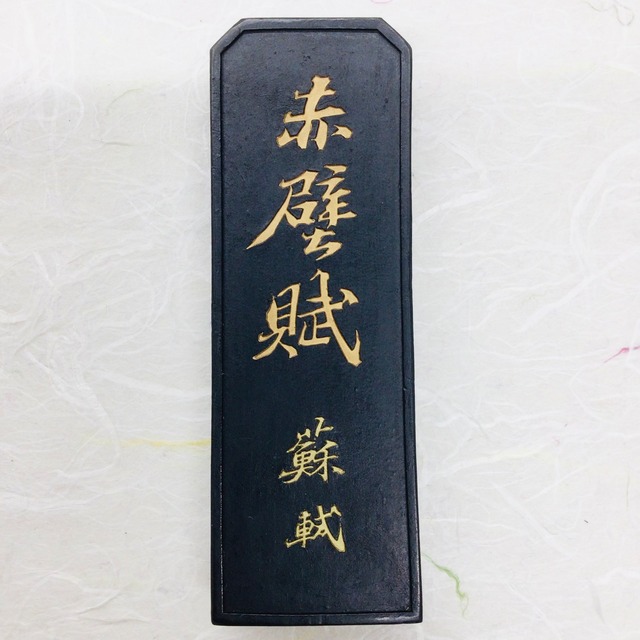 赤壁賦
蘇軾